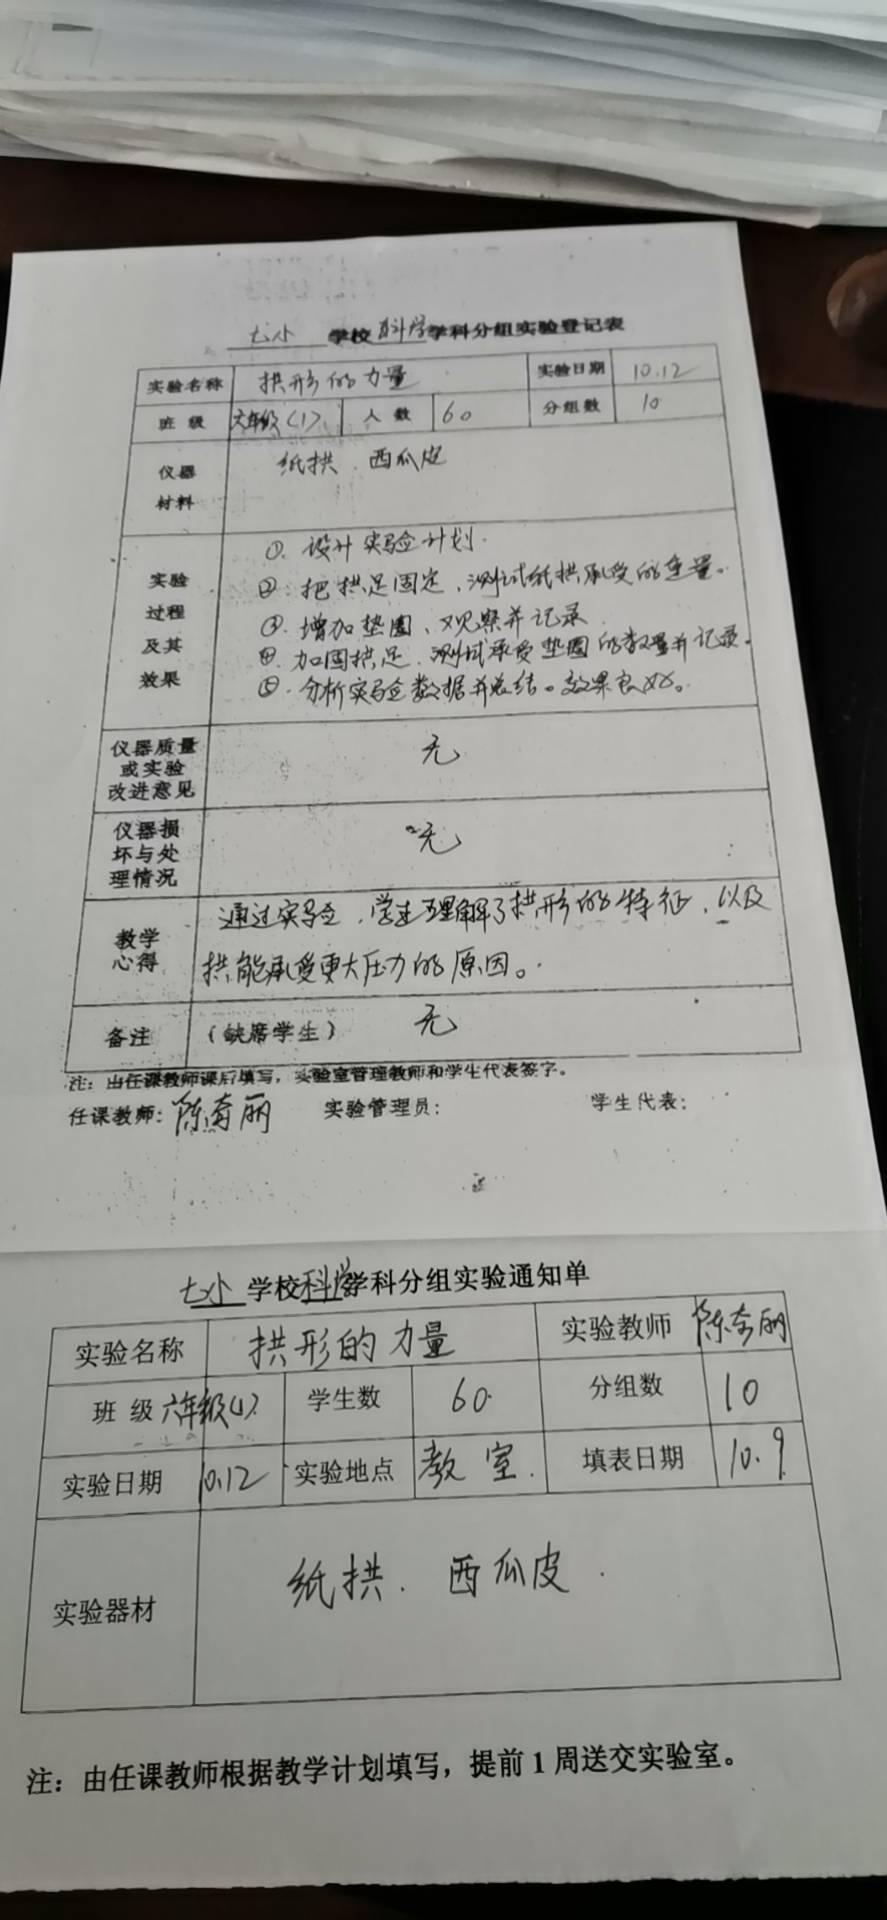 七小 学校科学学科分组实验登记表
实验名称 拱形的力量 实验日期 10.12
班 级 六年级(1) 人 数 60 分组数 10
仪器 纸拱、西瓜皮
材料
①、设计实验计划.
实验 ②、把拱足固定、测试纸拱承受的重量。
过程 ③、增加垫圈、观察并记录
及其 ④、加固拱足、测试承受垫圈的数量并记录。
效果 ⑤、分析实验数据并总结。效果良好。
仪器质量
或实验 无
改进意见
仪器损
坏与处 无
理情况
教学 通过实验、学生理解了拱形的特征、以及
心得 拱能承受更大压力的原因。
备注 (缺席学生) 无
注：由任课教师课后填写，实验室管理教师和学生代表签字。
任课教师：陈奇丽 实验管理员： 学生代表：
七小 学校科学学科分组实验通知单
实验名称 拱形的力量 实验教师 陈奇丽
班 级 六年级(1) 学生数 60 分组数 10
实验日期 10.12 实验地点 教室. 填表日期 10.9
实验器材 纸拱、西瓜皮.
注：由任课教师根据教学计划填写，提前1周送交实验室。